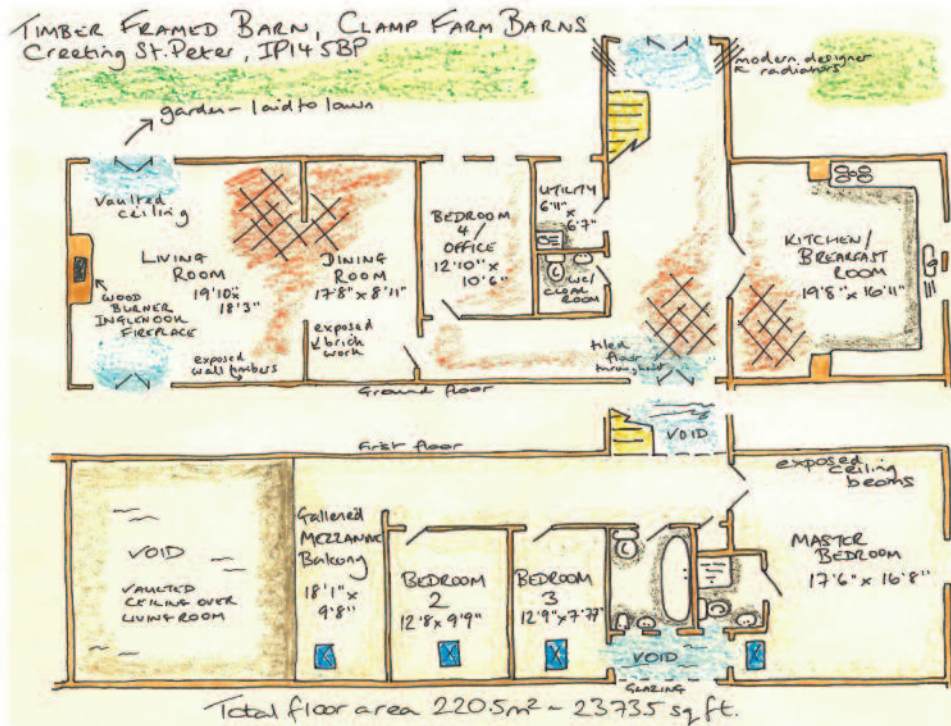 TIMBER FRAMED BARN, CLAMP FARM BARNS
Creeting St. Peter, IP14 5BP
garden - laid to lawn
modern designer
radiators
Vaulted
ceiling
LIVING
ROOM
19'10"x
18'3"
WOOD
BURNER
INGLENOOK
FIREPLACE
exposed
wall timbers
DINING
ROOM
17'8" x 8'11"
exposed
brick
work
BEDROOM
4/
OFFICE
12'10" x
10'6"
UTILITY
6'11"
x
6'7"
WC/
CLOAK
ROOM
tiled
floor
throughout
KITCHEN/
BREAKFAST
ROOM
19'8" x 16'11"
Ground floor
First floor
VOID
VOID
VAULTED
CEILING OVER
LIVING ROOM
Galleried
MEZZANINE
Balcony
18'1" x
9'8"
BEDROOM
2
12'8 x 9'9"
BEDROOM
3
12'9" x 7'7"
VOID
GLAZING
exposed
ceiling
beams
MASTER
BEDROOM
17'6" x 16'8"
Total floor area 220.5m² ~ 2373.5 sq ft.